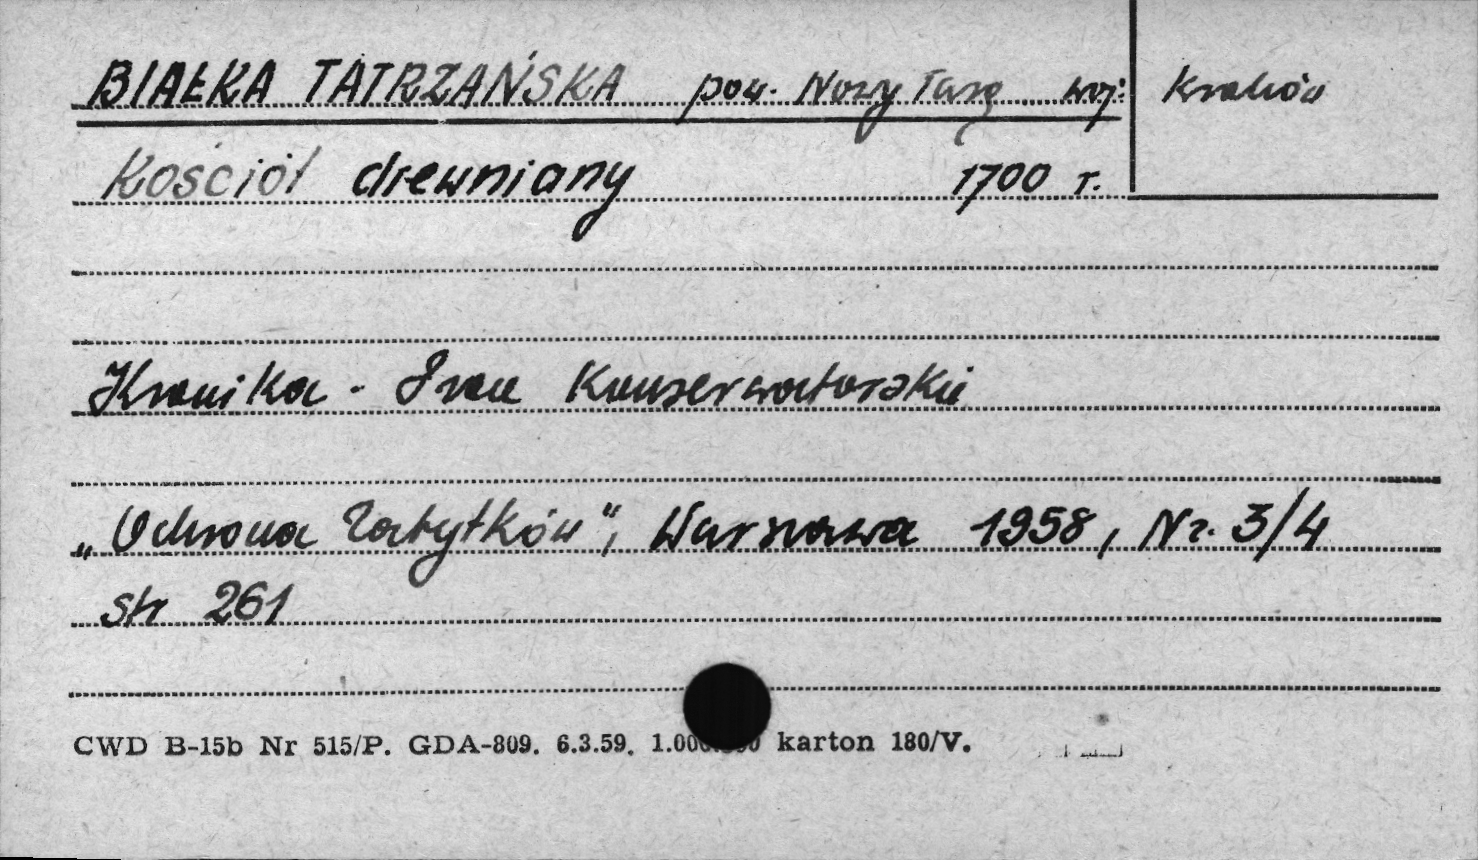 BIAŁKA TATRZAŃSKA pow. Nowy Targ woj: Kraków
Kościół drewniany 1700 r.
Kronika - Prace Konserwatorskie
„Ochrona Zabytków", Warszawa 1958, Nr. 3/4
str 261
CWD B-15b Nr 515/P. GDA-809. 6.3.59. karton 180/V.